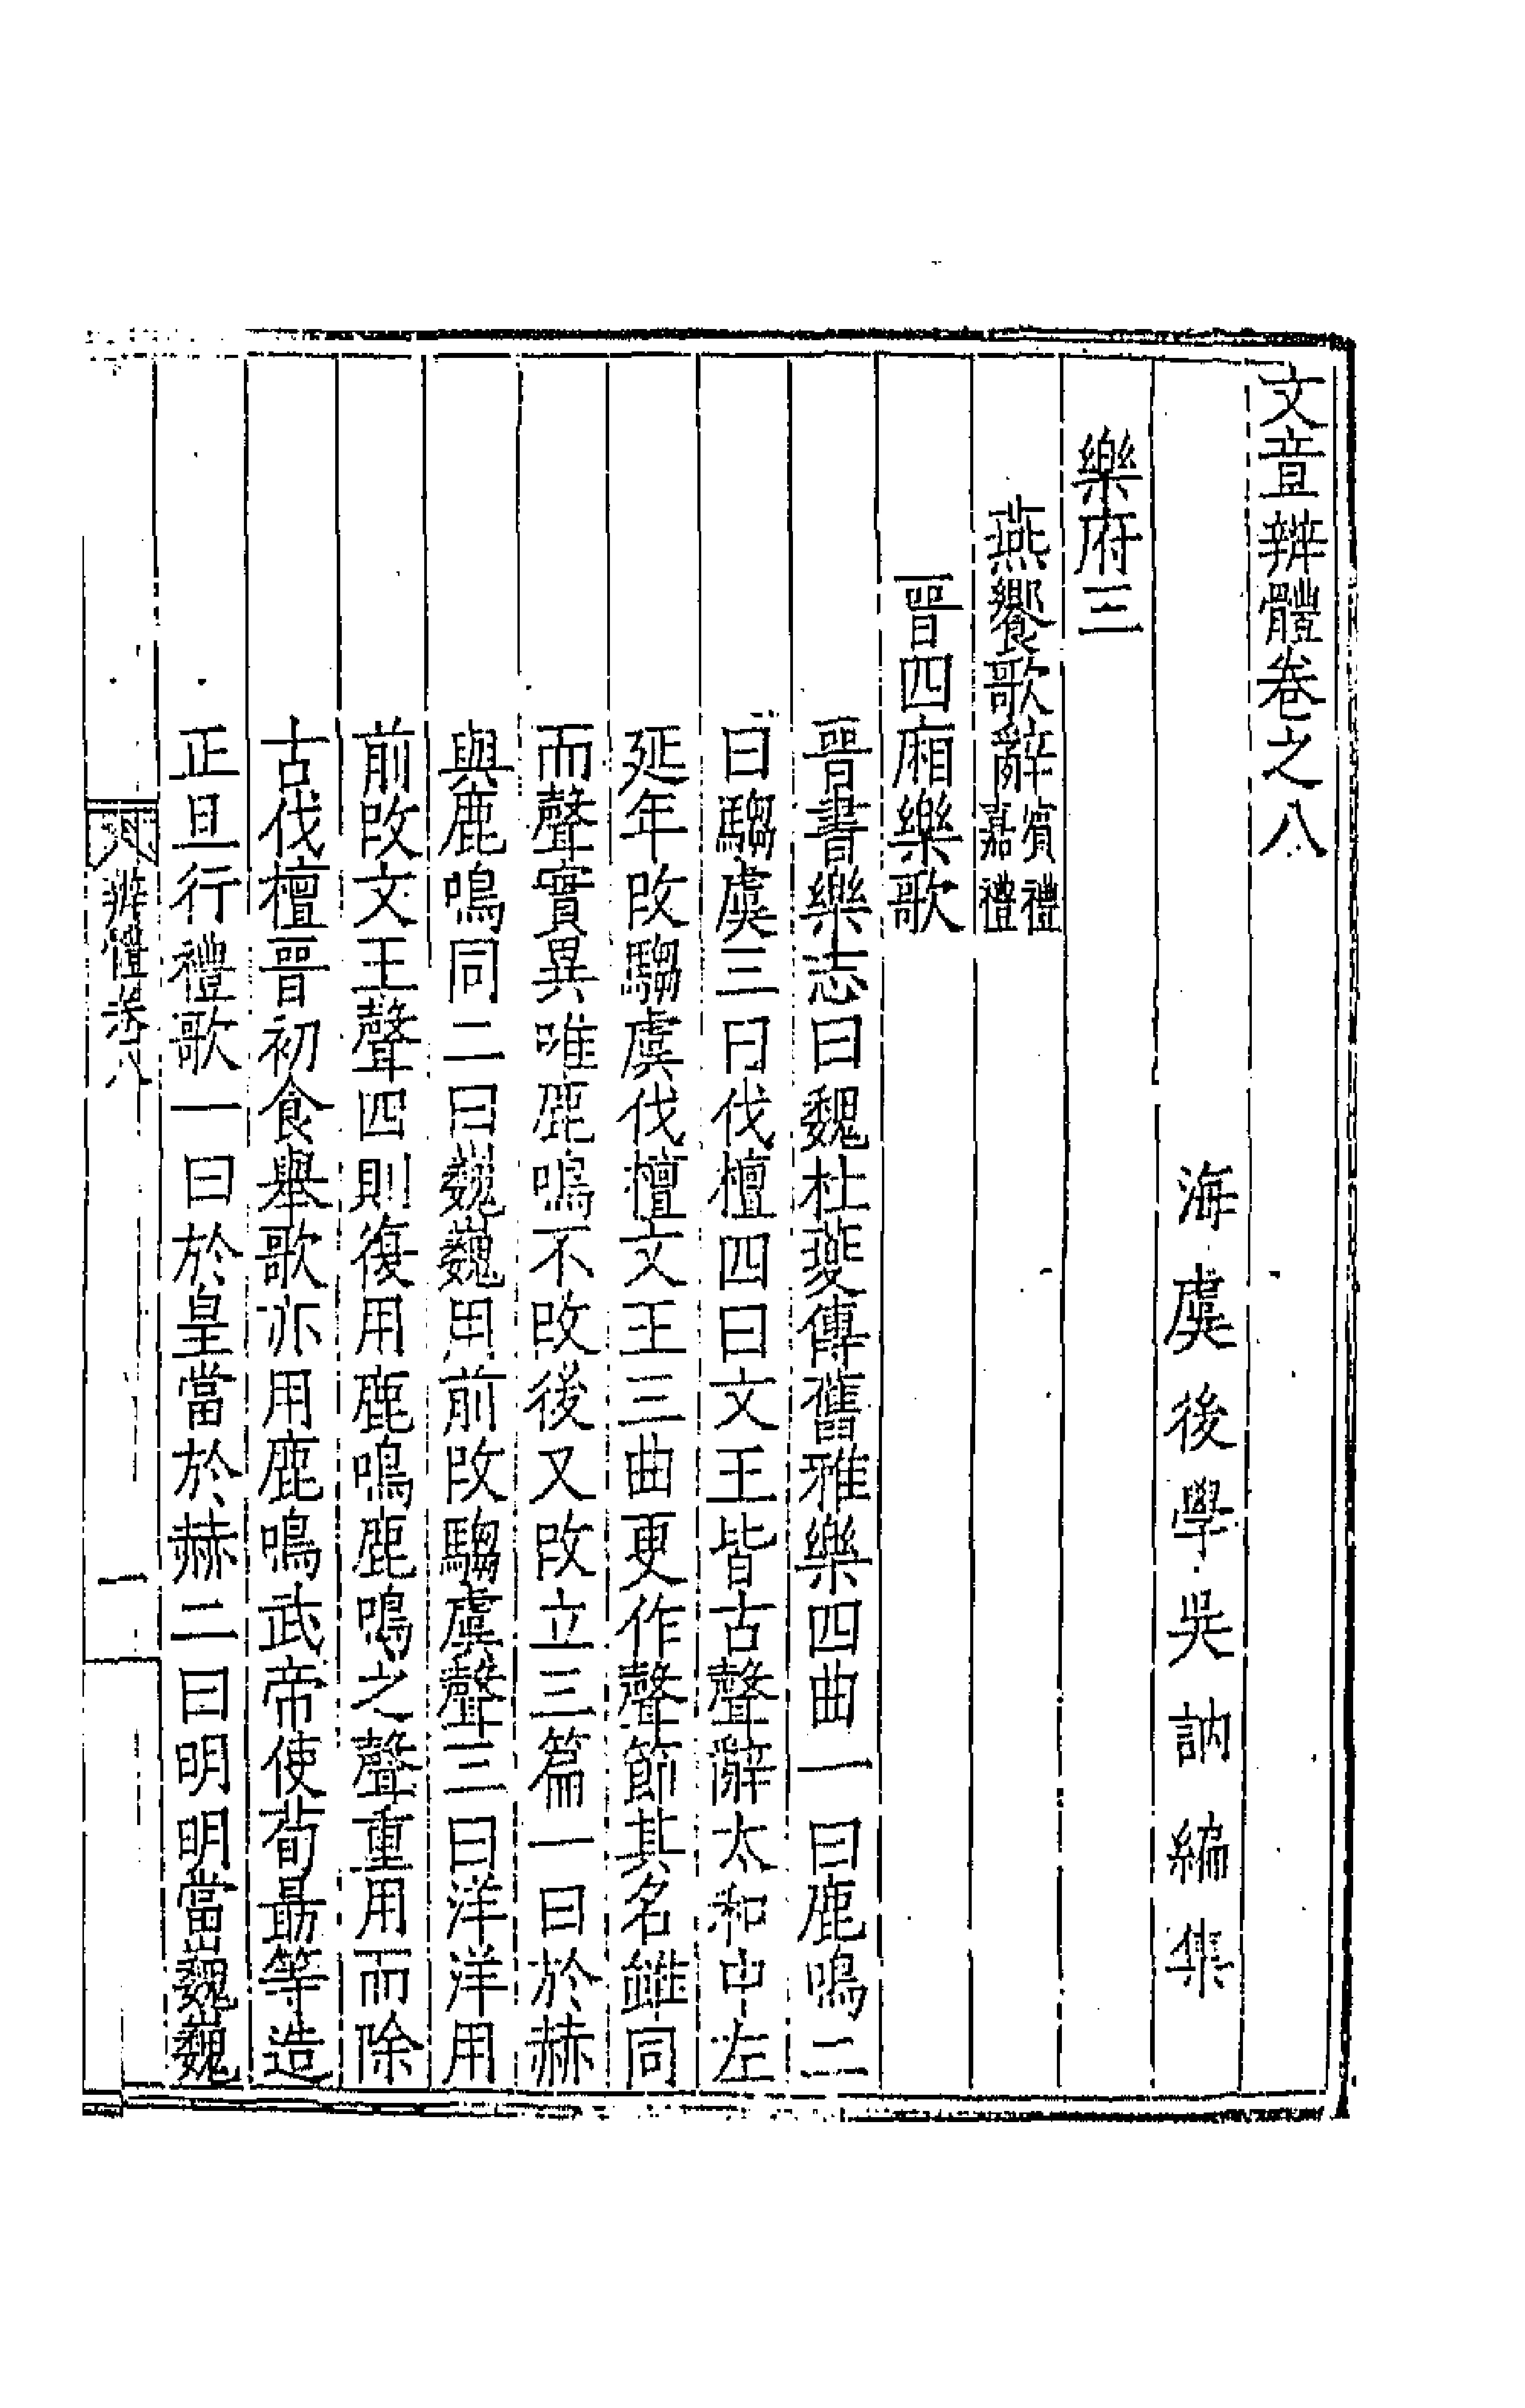 文章辯體卷之八
海虞後學吳訥編集
樂府三
燕饗歌辭賓禮嘉禮
晉四廂樂歌
晉書樂志曰魏杜夔傳舊雅樂四曲一曰鹿鳴二
曰騶虞三曰伐檀四曰文王皆古聲辭太和中左
延年改騶虞伐檀文王三曲更作聲節其名雖同
而聲實異唯鹿鳴不改後又改立三篇一曰於赫
與鹿鳴同二曰巍巍用前改騶虞聲三曰洋洋用
前改文王聲四則復用鹿鳴鹿鳴之聲重用而除
古伐檀晉初食舉歌亦用鹿鳴武帝使荀勗等造
正旦行禮歌一曰於皇當於赫二曰明明當巍巍
辨體卷八
一